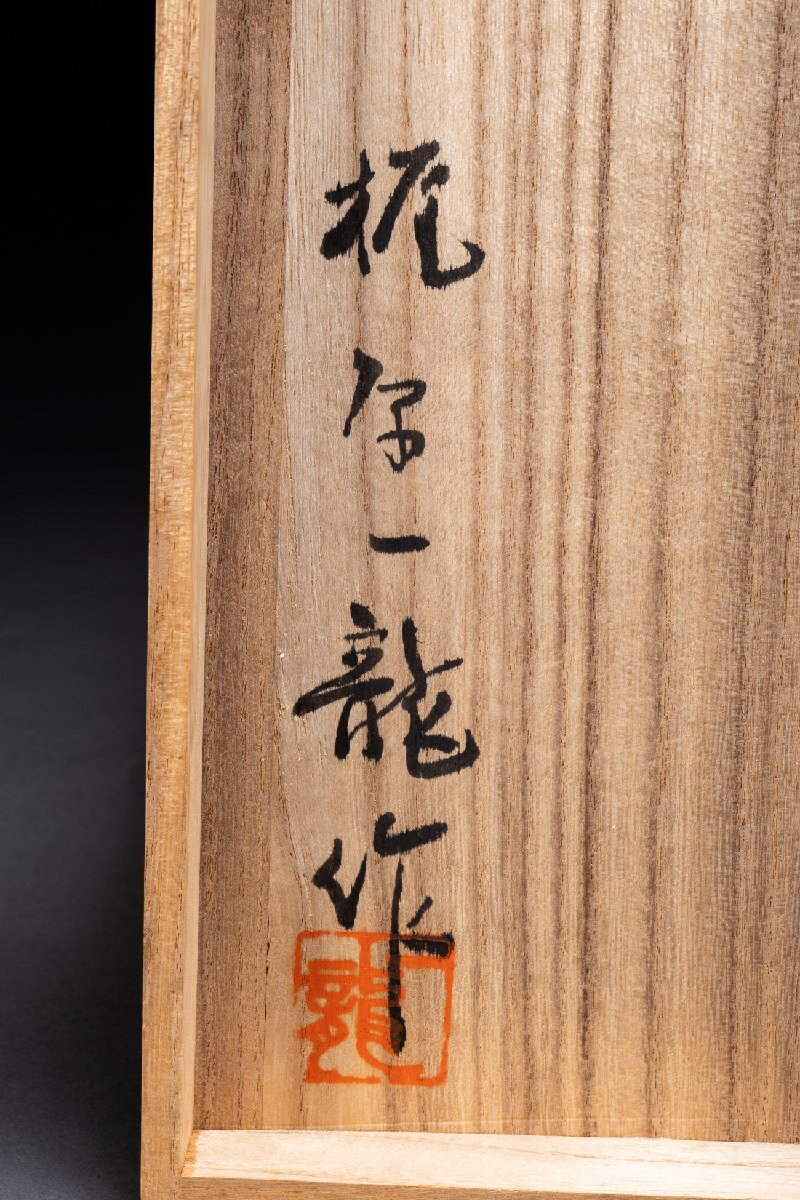 梶原一龍作